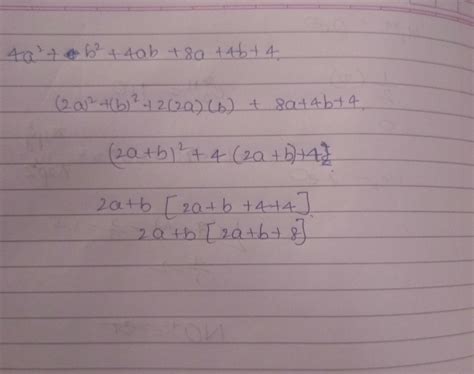 4a² + b² + 4ab + 8a + 4b + 4.
(2a)² + (b)² + 2(2a)(b) + 8a+4b+4.
(2a+b)² + 4(2a+b)+4
2a+b [2a+b +4+4]
2a+b [2a+b+8]